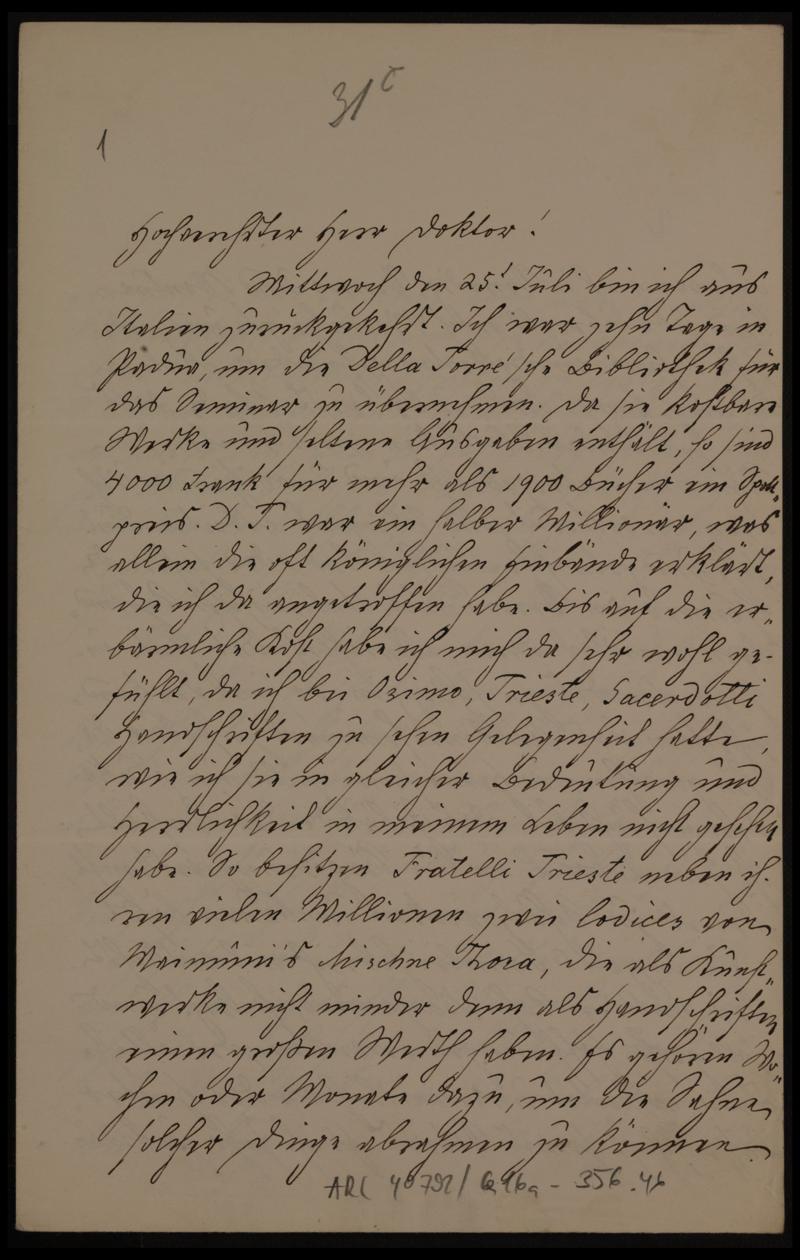 31c
1
Hochverehrter Herr Doktor!
Mittwoch den 25t Juli bin ich aus
Italien zurückgekehrt. Ich war zehn Tage in
Padua, um die Della Torre'sche Bibliothek für
das Seminar zu übernehmen. Da sie kostbare
Werke und seltene Ausgaben enthält, so sind
4000 Frank für mehr als 1900 Bücher ein Spott„
preis. D. T. war ein halber Millionär, was
allein die oft königlichen Einbände erklärt,
die ich da angetroffen habe. Bis auf die er„
bärmliche Kost habe ich mich da sehr wohl ge-
fühlt, da ich bei Osimo, Trieste, Sacerdotti
Handschriften zu sehen Gelegenheit hatte,
wie ich sie in gleicher Bedeutung und
Herrlichkeit in meinem Leben nicht gesehen
habe. So besitzen Fratelli Trieste neben ih-
ren vielen Millionen zwei Codices von
Maimûni's Mischne Thora, die als Kunst„
werke nicht minder denn als Handschriften
einen großen Werth haben. Es gehören Wo„
chen oder Monate dazu, um die Sahne
solcher Dinge abrahmen zu können.
ARC 4° 792/ G 16a - 356.46